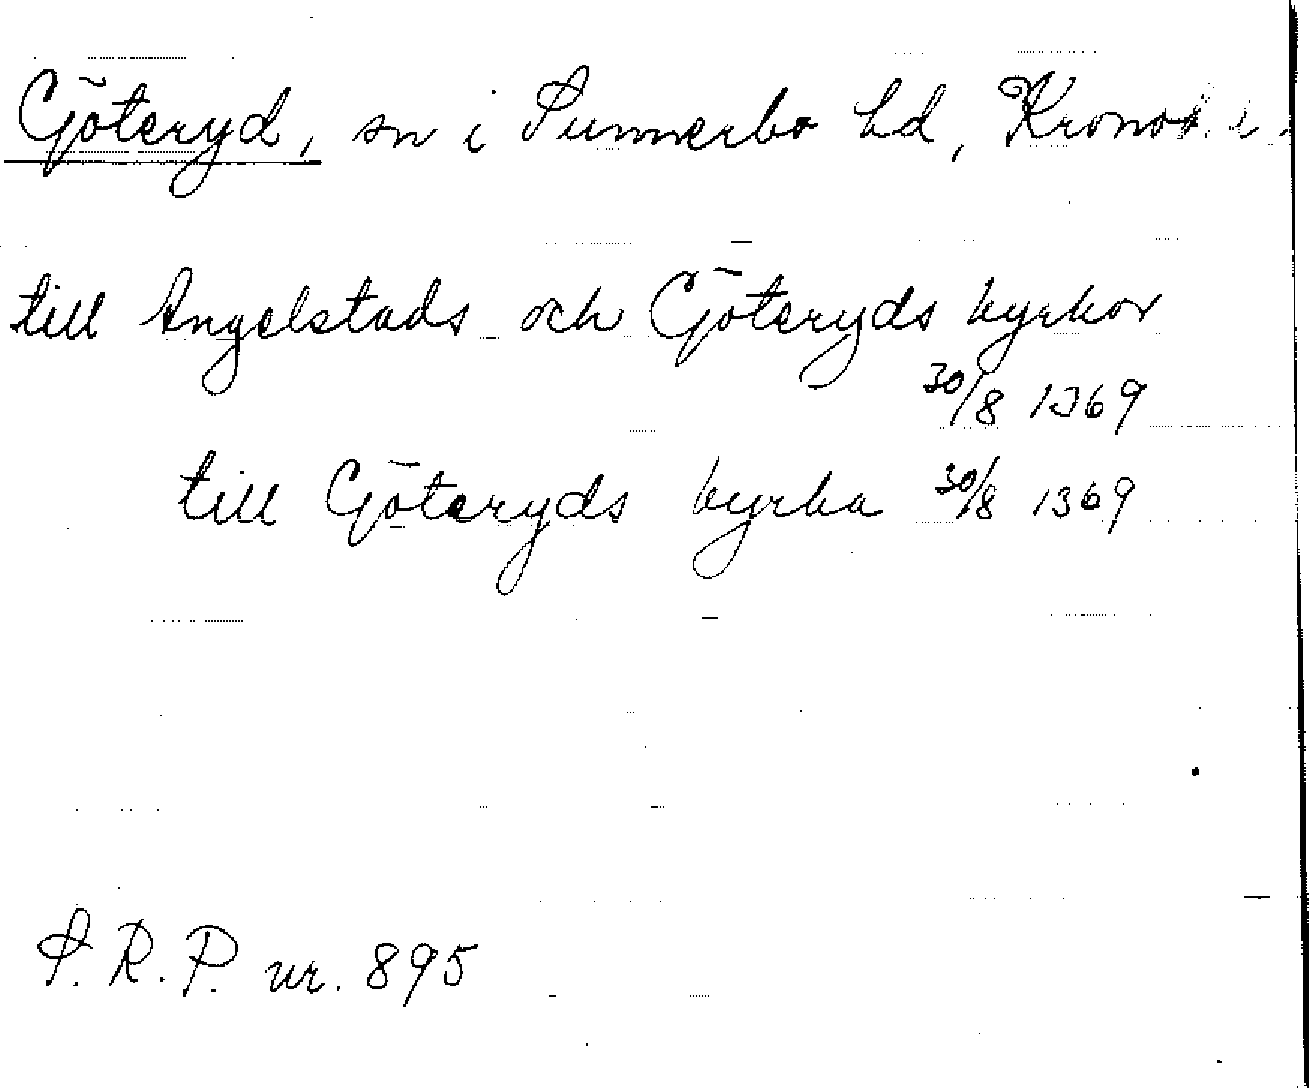 Göteryd, sn i Sunnerbo hd, Kronob. l.
till Angelstads och Göteryds kyrkor
30/8 1369
till Göteryds kyrka 30/8 1369
S. R. P. nr. 895